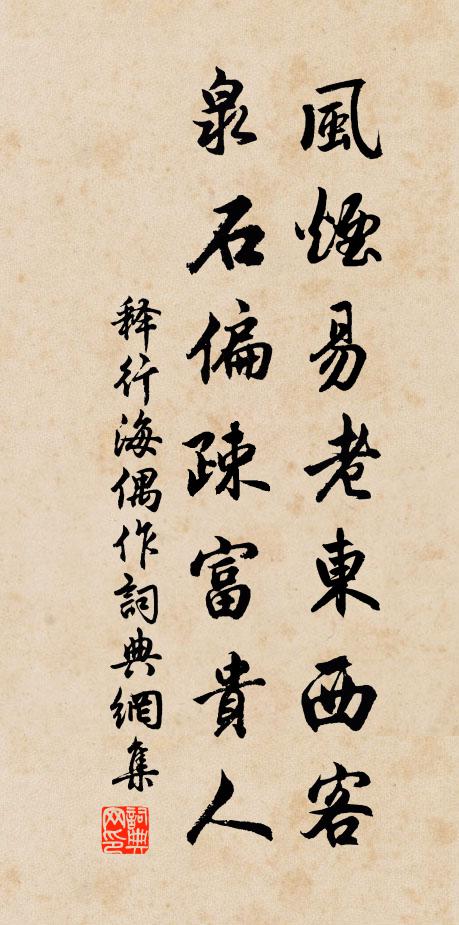 風煙易老東西客
泉石偏疎富貴人
释行海偶作詞典網集
詞典网印